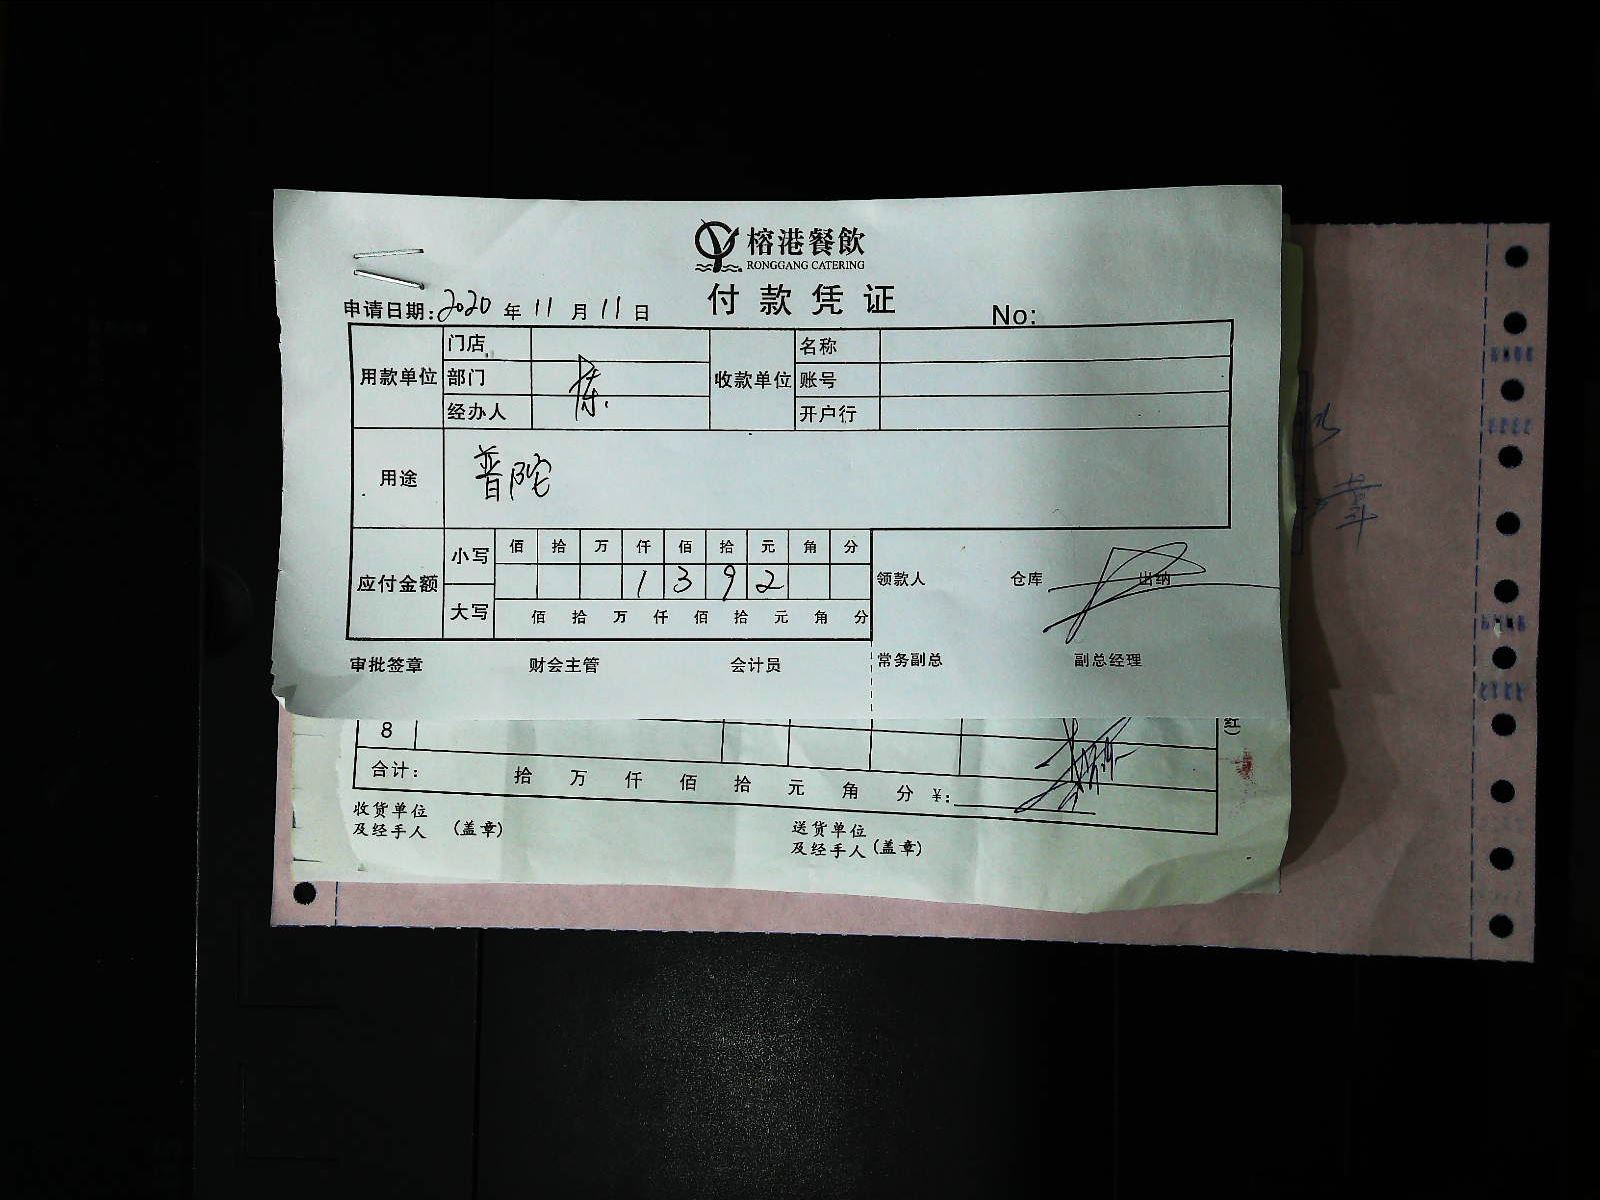 榕港餐飲
RONGGANG CATERING
付款凭证
申请日期:2020年11月11日 No:
用款单位 门店 收款单位 名称
部门 陈 账号
经办人 开户行
用途 普陀
应付金额 小写 佰 拾 万 仟 佰 拾 元 角 分
1 3 9 2
大写 佰 拾 万 仟 佰 拾 元 角 分
领款人 仓库 出纳
审批签章 财会主管 会计员 常务副总 副总经理
8
红)
合计: 拾 万 仟 佰 拾 元 角 分 ¥:
收货单位
及经手人 (盖章)
送货单位
及经手人 (盖章)